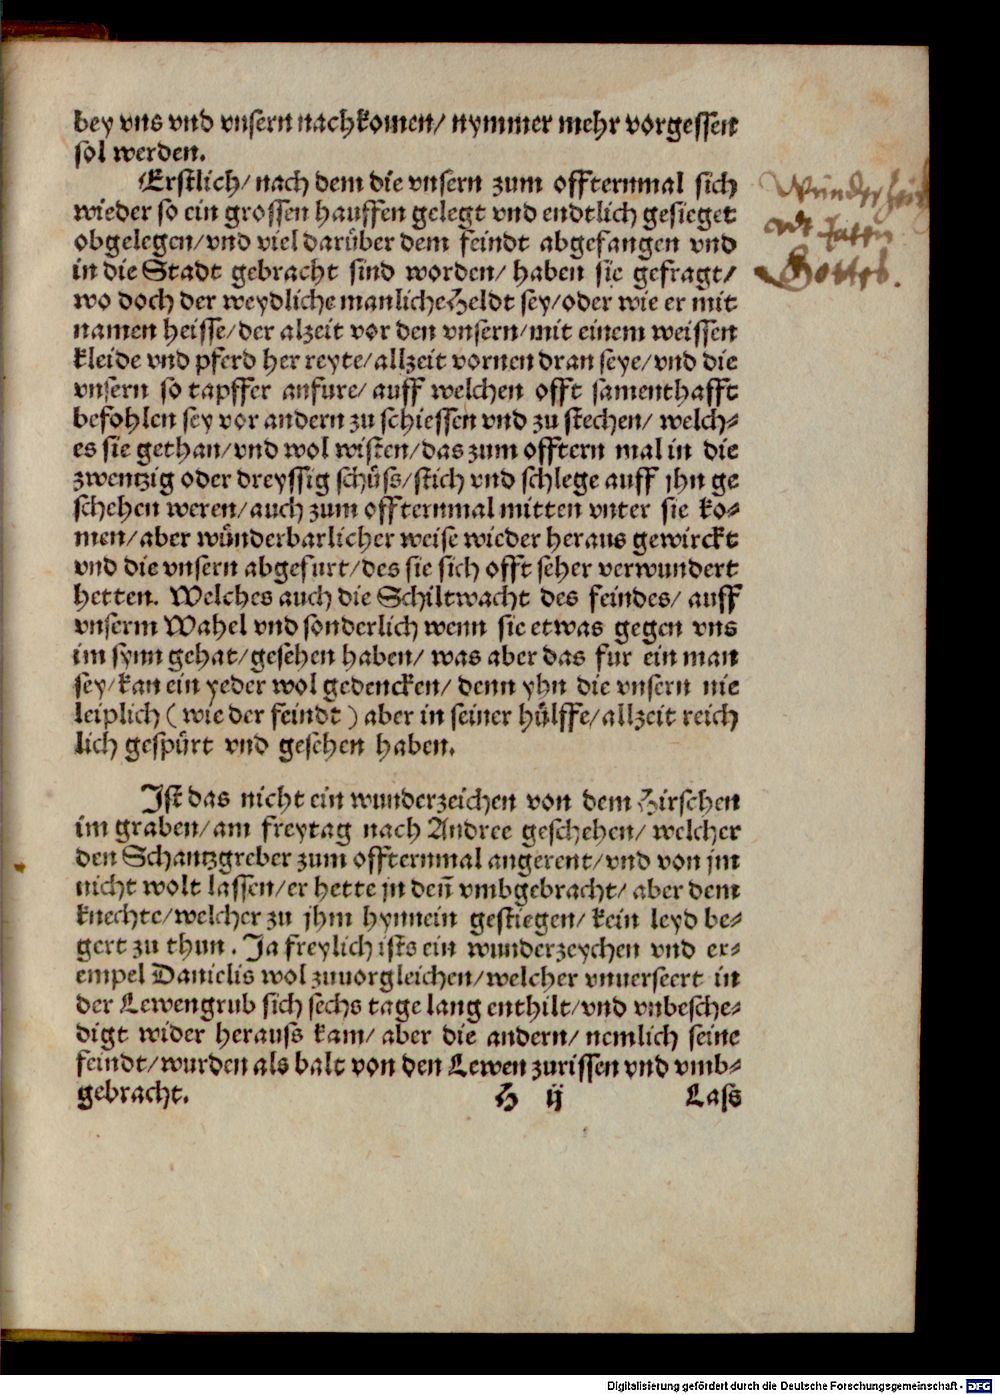 bey vns vnd vnsern nachkomen/ nymmer mehr vorgessen
sol werden.
Erstlich/ nach dem die vnsern zum offternmal sich
wieder so ein grossen hauffen gelegt vnd endtlich gesieget
obgelegen/ vnd viel darüber dem feindt abgefangen vnd
in die Stadt gebracht sind worden/ haben sie gefragt/
wo doch der weydliche manliche Heldt sey/ oder wie er mit
namen heisse/ der alzeit vor den vnsern/ mit einem weissen
kleide vnd pferd her reyte/ allzeit vornen dran seye/ vnd die
vnsern so tapffer anfure/ auff welchen offt samenthafft
befohlen sey vor andern zu schiessen vnd zu stechen/ welch-
es sie gethan/ vnd wol wisten/ das zum offtern mal in die
zwentzig oder dreyssig schüss/ stich vnd schlege auff jhn ge
schehen weren/ auch zum offternmal mitten vnter sie ko-
men/ aber wünderbarlicher weise wieder heraus gewirckt
vnd die vnsern abgefurt/ des sie sich offt seher verwundert
hetten. Welches auch die Schiltwacht des feindes/ auff
vnserm Wahel vnd sonderlich wenn sie etwas gegen vns
im synn gehat/ gesehen haben/ was aber das fur ein man
sey/ kan ein yeder wol gedencken/ denn yhn die vnsern nie
leiplich ( wie der feindt ) aber in seiner hülffe/ allzeit reich
lich gespürt vnd gesehen haben.
Ist das nicht ein wunderzeichen von dem Hirschen
im graben/ am freytag nach Andree geschehen/ welcher
den Schantzgreber zum offternmal angerent/ vnd von jm
nicht wolt lassen/ er hette jn deñ vmbgebracht/ aber dem
knechte/ welcher zu jhm hynnein gestiegen/ kein leyd be-
gert zu thun. Ja freylich ists ein wunderzeychen vnd er-
empel Danielis wol zuuorgleichen/ welcher vnuerseert in
der Lewengrub sich sechs tage lang enthilt/ vnd vnbesche-
digt wider herauss kam/ aber die andern/ nemlich seine
feindt/ wurden als balt von den Lewen zurissen vnd vmb-
gebracht.
H ij
Lass
Gottes.
Digitalisierung gefördert durch die Deutsche Forschungsgemeinschaft - DFG